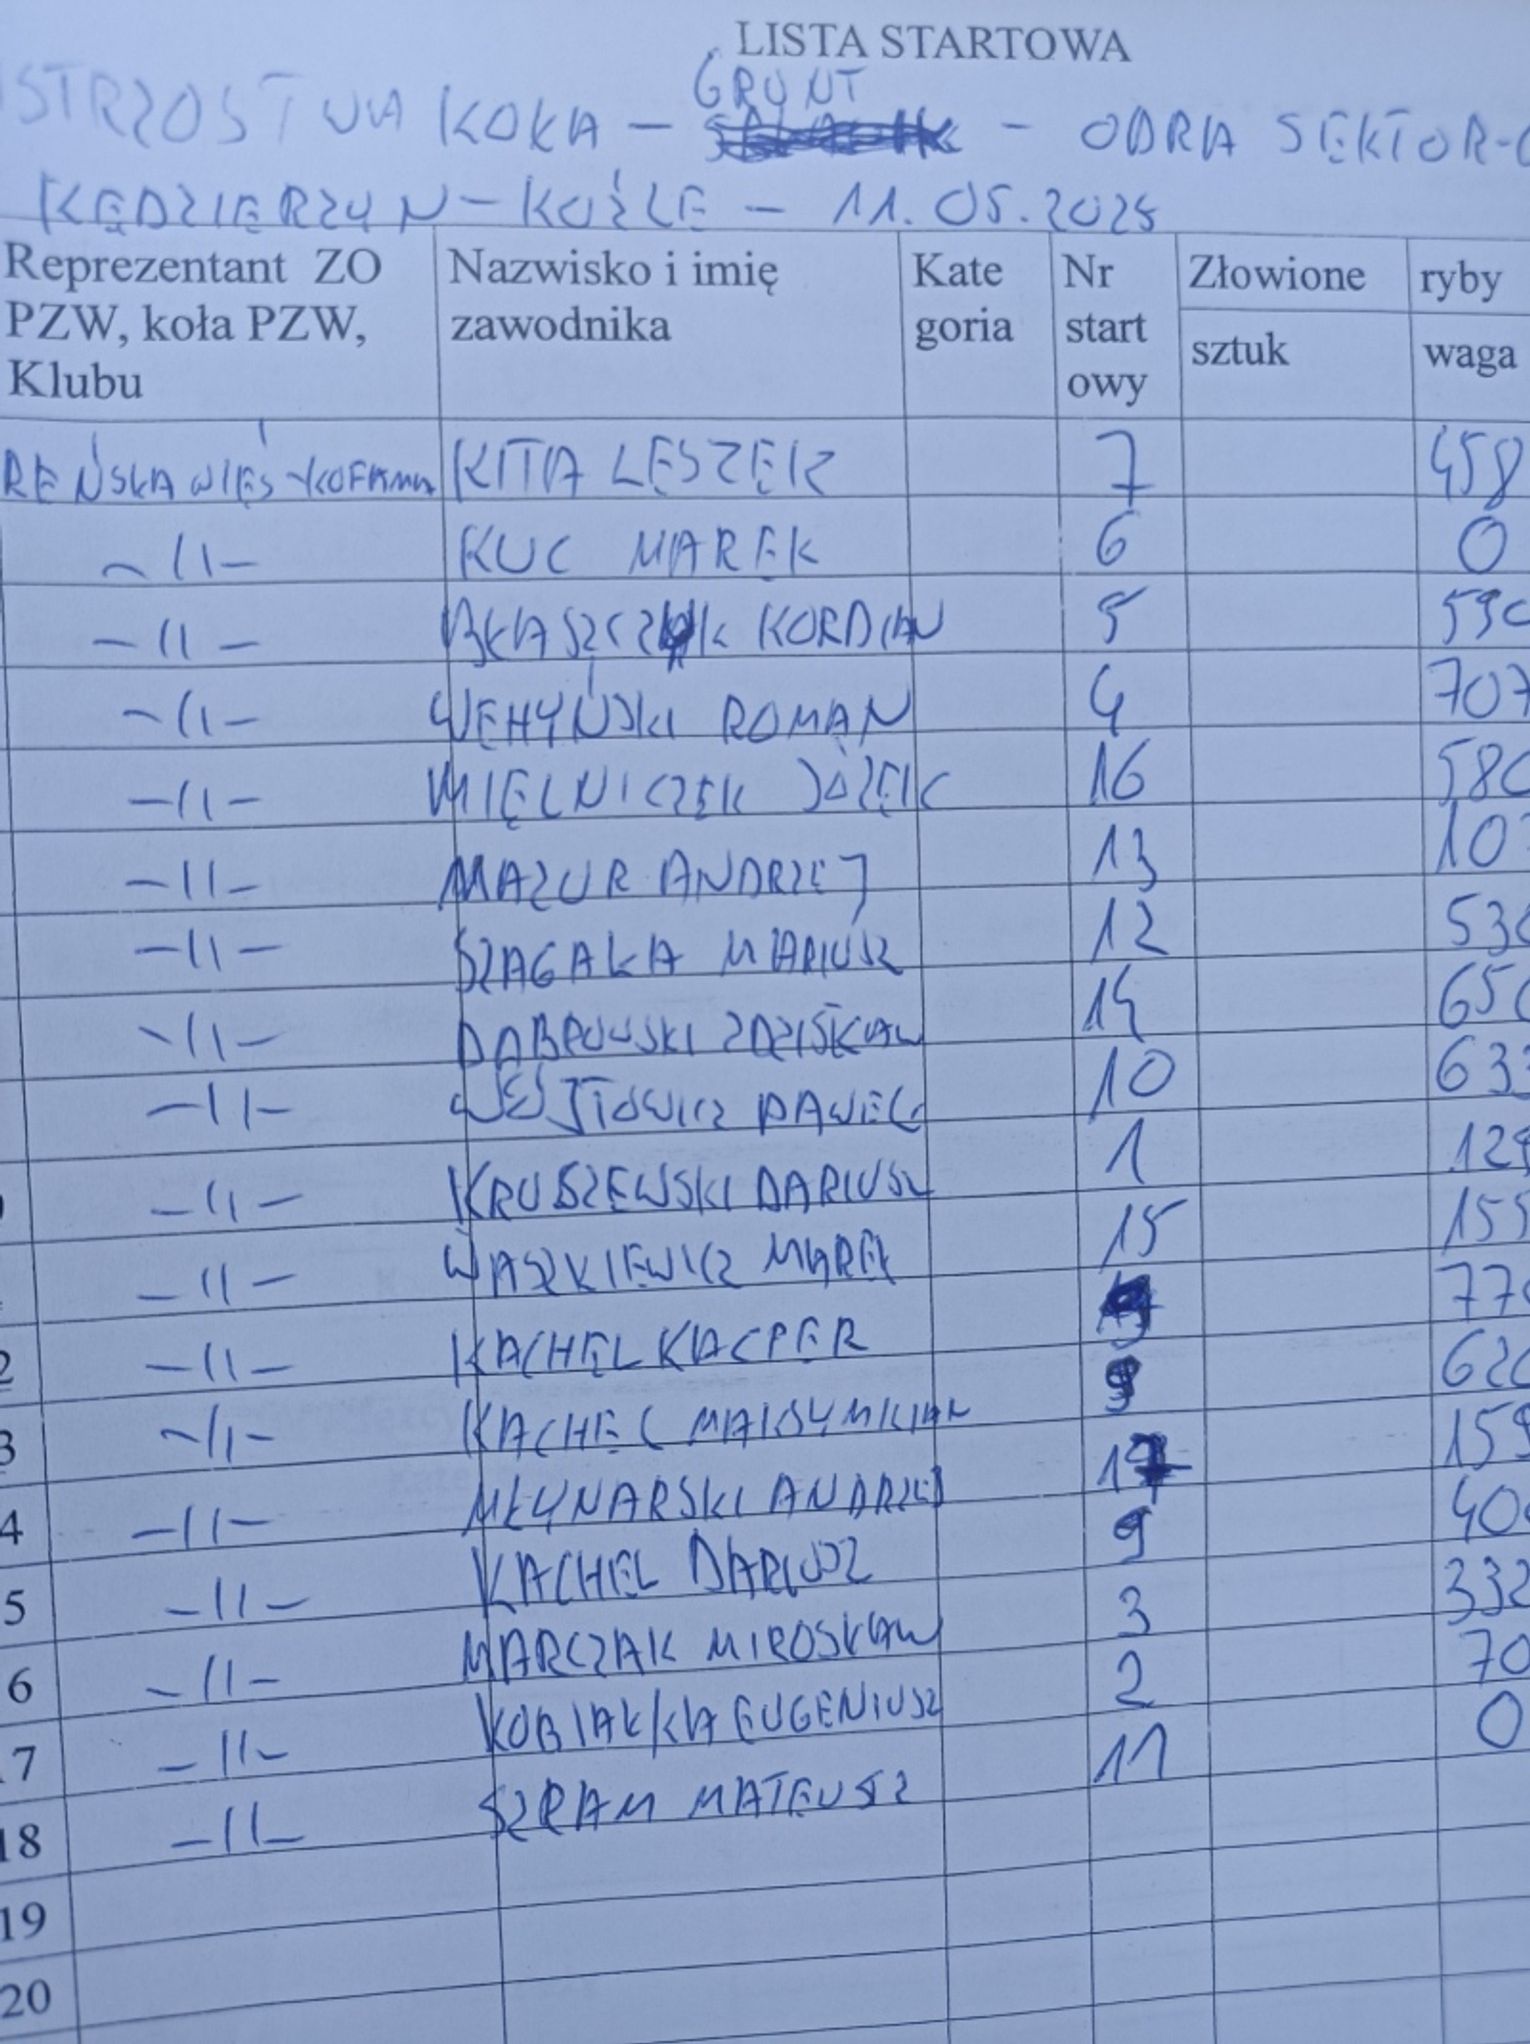 LISTA STARTOWA
GRUNT
KOŁA - - ODRA SEKTOR-
KĘDZIERZYN - KOŹLE - 11.05.2025
Reprezentant ZO PZW, koła PZW, Klubu Nazwisko i imię zawodnika Kate goria Nr start owy Złowione ryby
sztuk waga
REŃSKA WIEŚ KITA LESZEK 7 458
-11- KUC MAREK 6 0
-11- BŁASZCZYK KORDIAN 5 590
-11- WEHYŃSKI ROMAN 4 707
-11- MIELNICZEK JÓZEK 16 580
-11- MAZUR ANDRZEJ 13 10
-11- SZAGAŁA MARIUSZ 12 530
-11- DĄBROWSKI ZDZISŁAW 14 650
-11- WÓJTOWICZ PAWEŁ 10 633
-11- KRUSZEWSKI DARIUSZ 1 12
-11- WASZKIEWICZ MAREK 15 155
2 -11- KACHEL KACPER 77
3 -11- KACHEL MAKSYMILIAN 620
4 -11- MŁYNARSKI ANDRZEJ 17 159
5 -11- KACHEL DARIUSZ 9 40
6 -11- MARCZAK MIROSŁAW 3 332
17 -11- KOBIAŁKA EUGENIUSZ 2 70
18 -11- SZRAM MATEUSZ 11 0
19
20